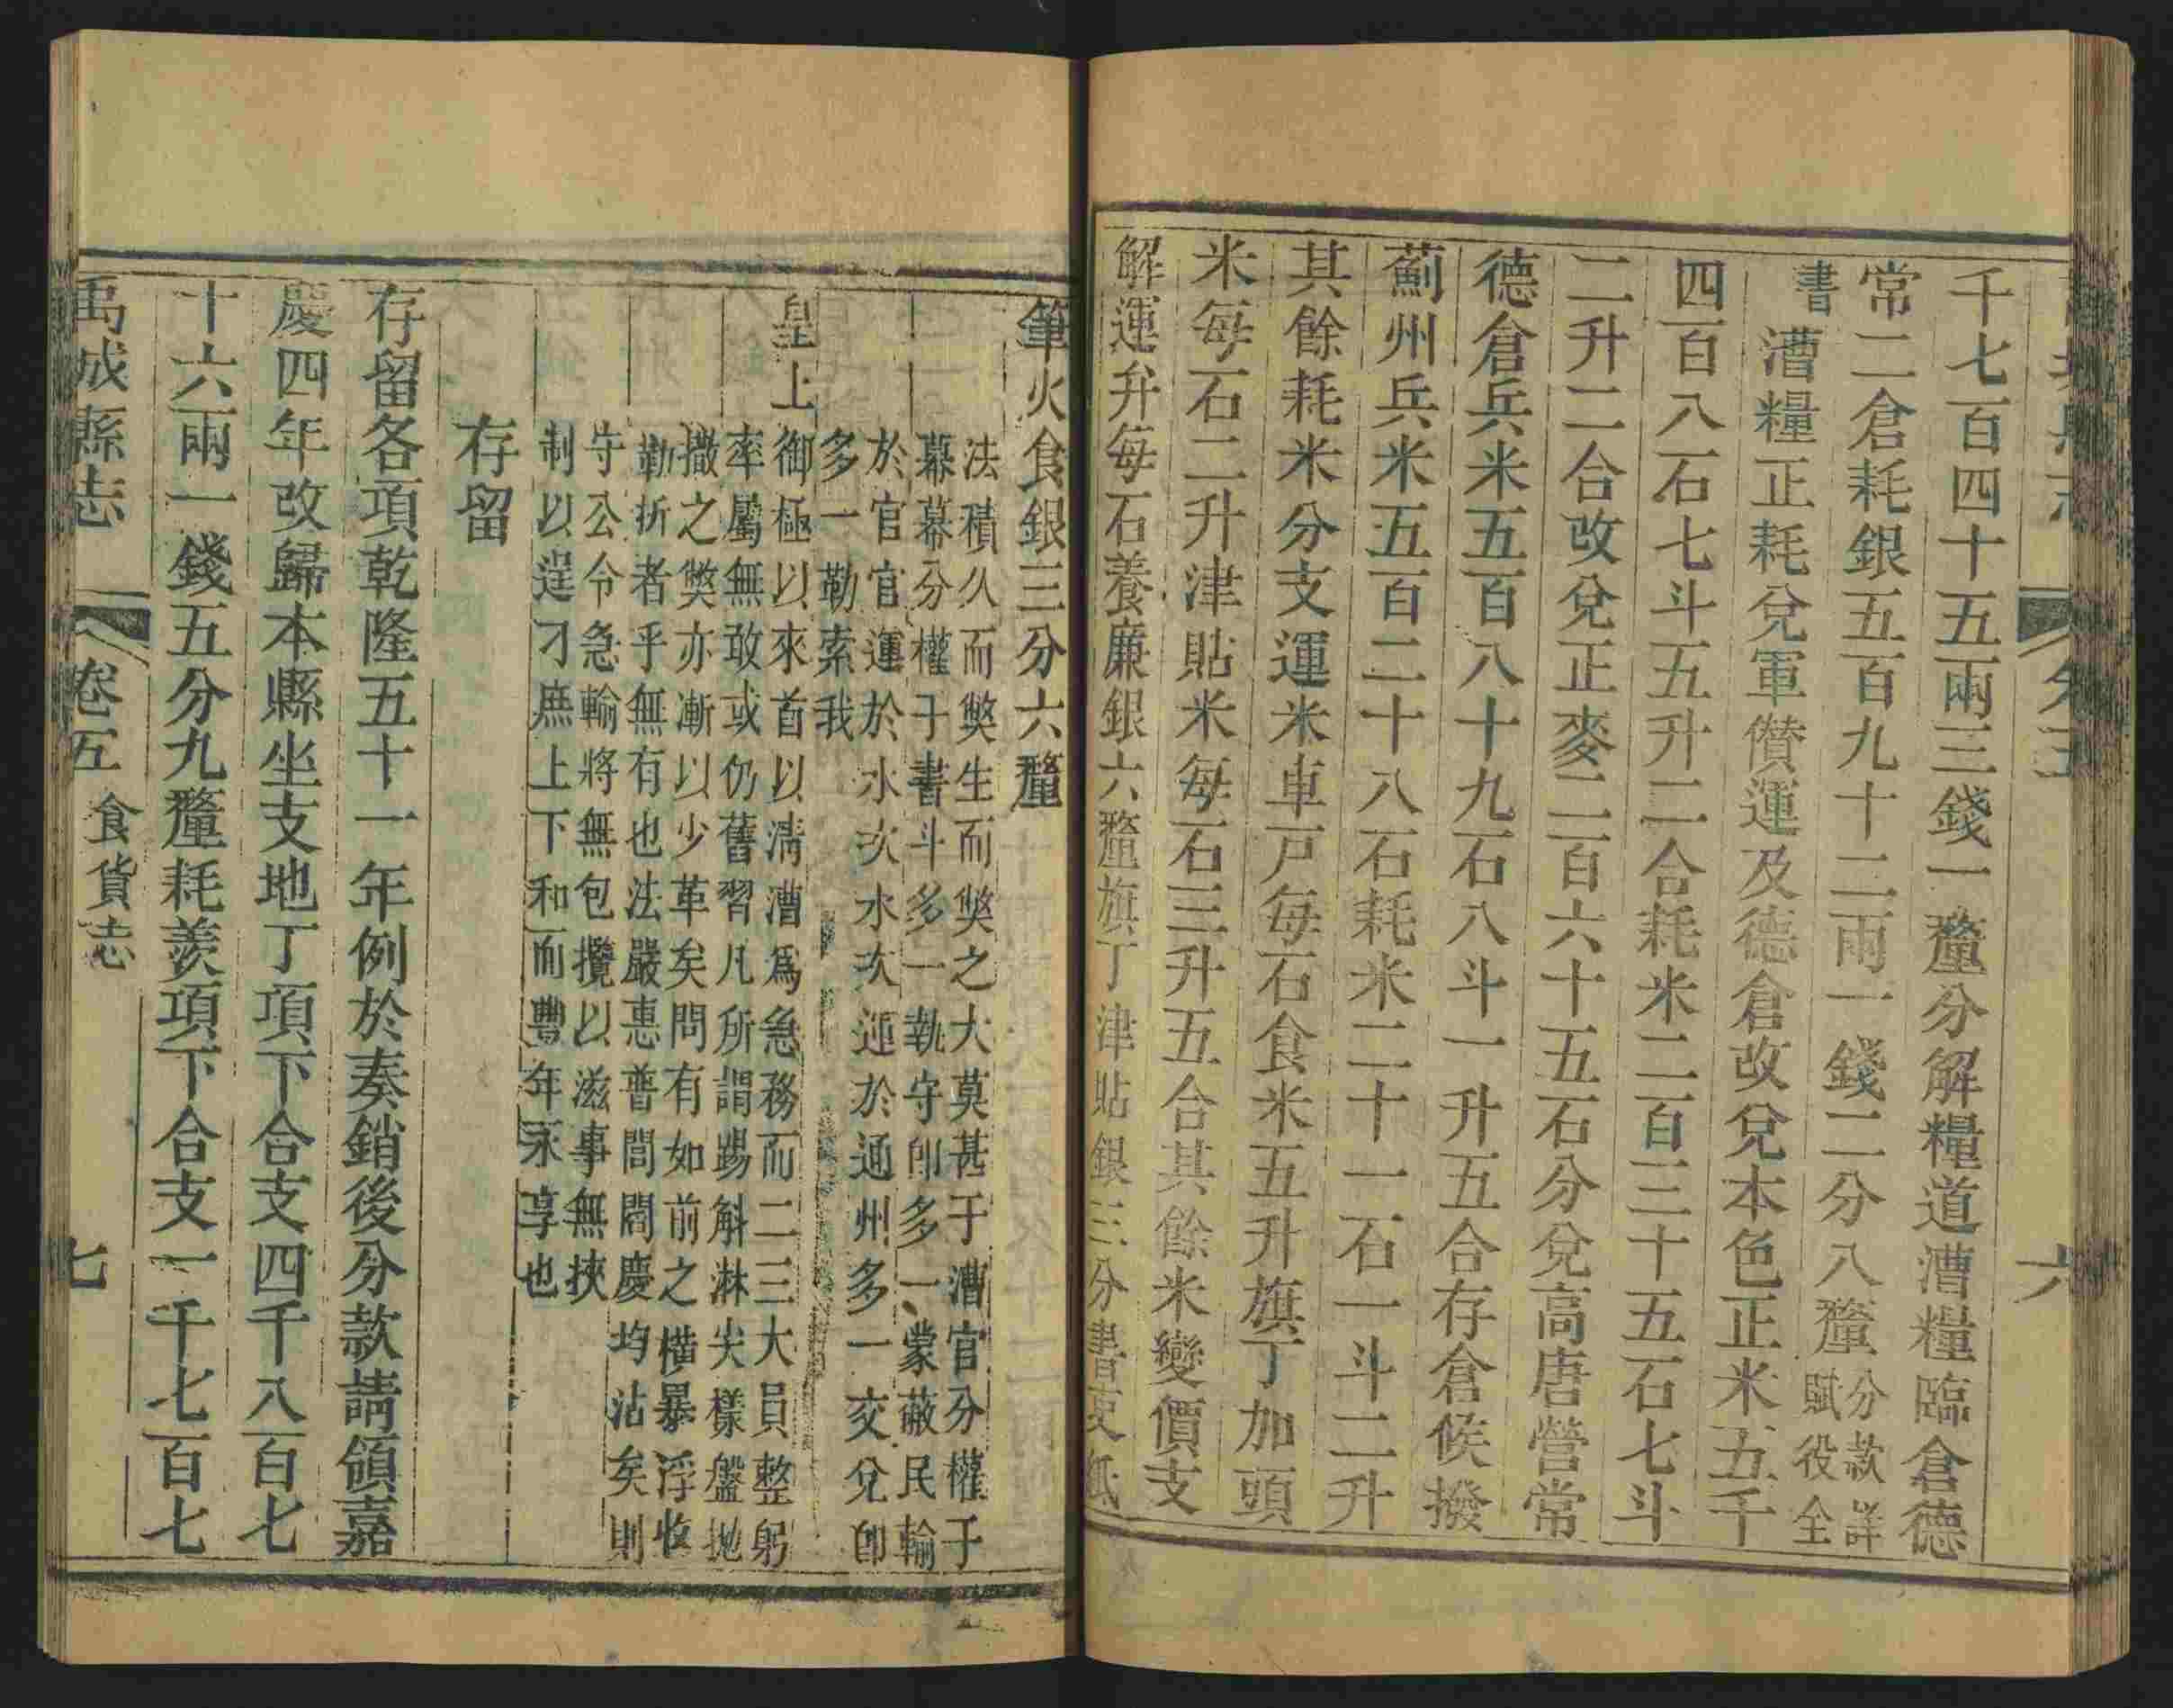 六
千七百四十五兩三錢一釐分解糧道漕糧臨倉德
常二倉耗銀五百九十二兩一錢二分八釐分款詳賦役全
書漕糧正耗兌軍儹運及德倉改兌本色正米五千
四百八石七斗五升二合耗米二百三十五石七斗
二升二合改兌正麥二百六十五石分兌高唐營常
德倉兵米五百八十九石八斗一升五合存倉候撥
薊州兵米五百二十八石耗米二十一石一斗二升
其餘耗米分支運米車戸每石食米五升旗丁加頭
米每石二升津貼米每石三升五合其餘米變價支
解運弁每石養廉銀六釐旗丁津貼銀三分書吏紙
筆火食銀三分六釐
法積久而獘生而獘之大莫甚于漕官分權于
幕幕分權于書斗多一執守卽多一蒙蔽民輸
於官官運於水次水次運於通州多一交兌卽
多一勒索我
皇上御極以來首以淸漕爲急務而二三大員整躬
率屬無敢或仍舊習凡所謂踢斛淋尖樣盤拋
撒之獘亦漸以少革矣問有如前之橫暴浮收
勒折者乎無有也法嚴惠普閭閻慶均沾矣則
守公令急輸將無包攬以滋事無挾
制以逞刁庶上下和而豐年永享也
存留
存留各項乾隆五十一年例於奏銷後分款請領嘉
慶四年改歸本縣坐支地丁項下合支四千八百七
十六兩一錢五分九釐耗羨項下合支一千七百七
禹城縣志 卷五 食貨志 七